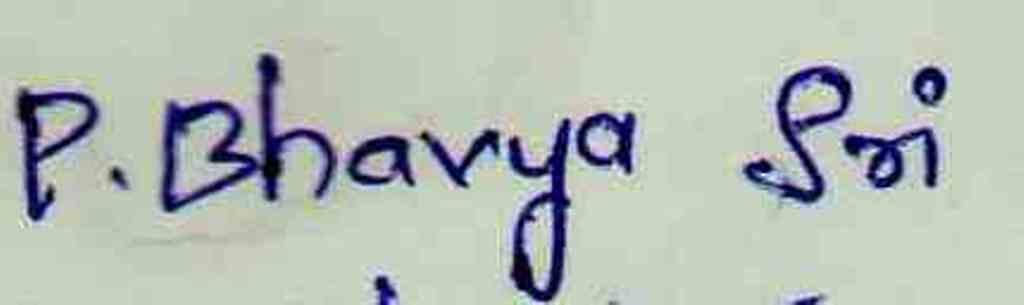 P. Bhavya Sri